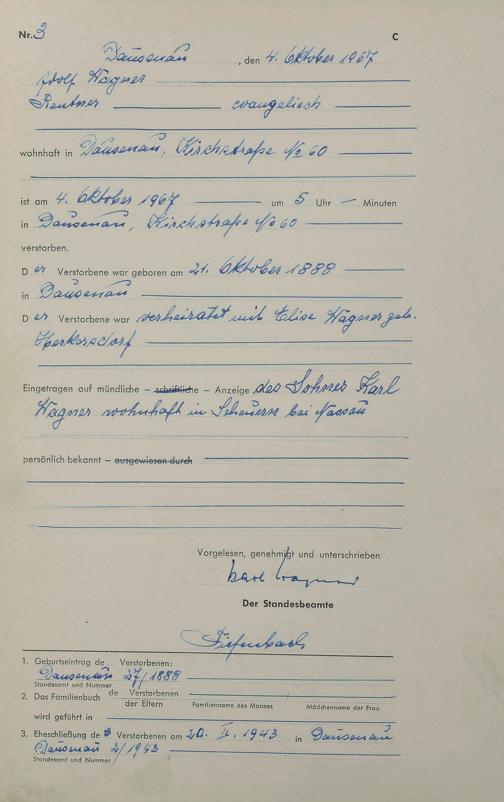 Nr. 3 C
Dausenau, den 4. Oktober 1967
Adolf Wagner
Rentner evangelisch
wohnhaft in Dausenau, Kirchstraße No 60
ist am 4. Oktober 1967 um 5 Uhr — Minuten
in Dausenau, Kirchstraße No 60
verstorben.
Der Verstorbene war geboren am 21. Oktober 1888
in Dausenau
Der Verstorbene war verheiratet mit Elise Wagner geb.
Herkersdorf
Eingetragen auf mündliche – schriftliche – Anzeige des Sohnes Karl
Wagner wohnhaft in Scheuern bei Nassau
persönlich bekannt – ausgewiesen durch
Vorgelesen, genehmigt und unterschrieben
Karl Wagner
Der Standesbeamte
Diefenbach
1. Geburtseintrag de Verstorbenen:
Dausenau 27/1888
Standesamt und Nummer
2. Das Familienbuch de Verstorbenen
der Eltern Familienname des Mannes / Mädchenname der Frau
wird geführt in
3. Eheschließung de Verstorbenen am 20. II. 1943 in Dausenau
Dausenau 2/1943
Standesamt und Nummer